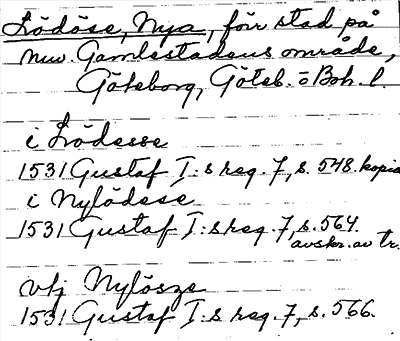 Lödöse, Nya, förr stad på
nuv. Gamlestadens område,
Göteborg, Göteb. o Boh. l.
i Lödesse
1531 Gustaf I:s reg. 7, s. 548. kopia
i Nylödese
1531 Gustaf I:s reg. 7, s. 564.
avskr. av tr.
vtj Nylösze
1531 Gustaf I:s reg. 7, s. 566.